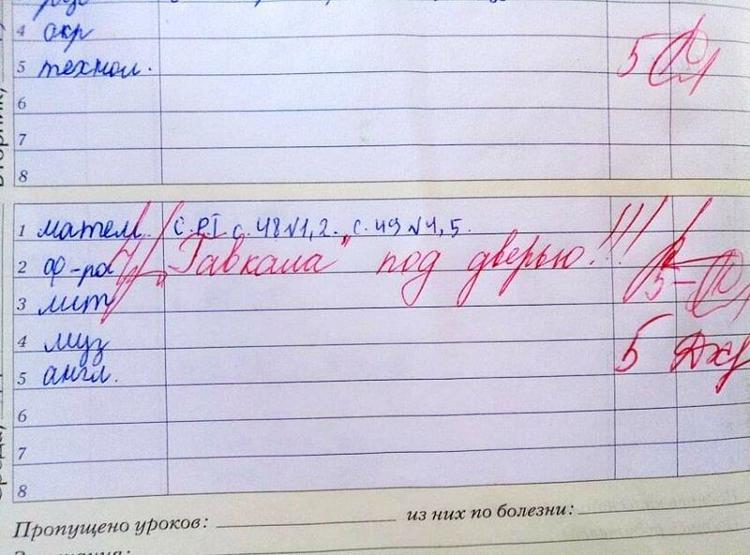 4 окр
5 технол. 5
6
7
8
1 матем. С.РТ с. 48 №1,2. с. 49 №4,5.
2 ф-ра "Гавкала" под дверью!!!
3 лит 5-
4 муз
5 англ. 5
6
7
8
Пропущено уроков: из них по болезни: